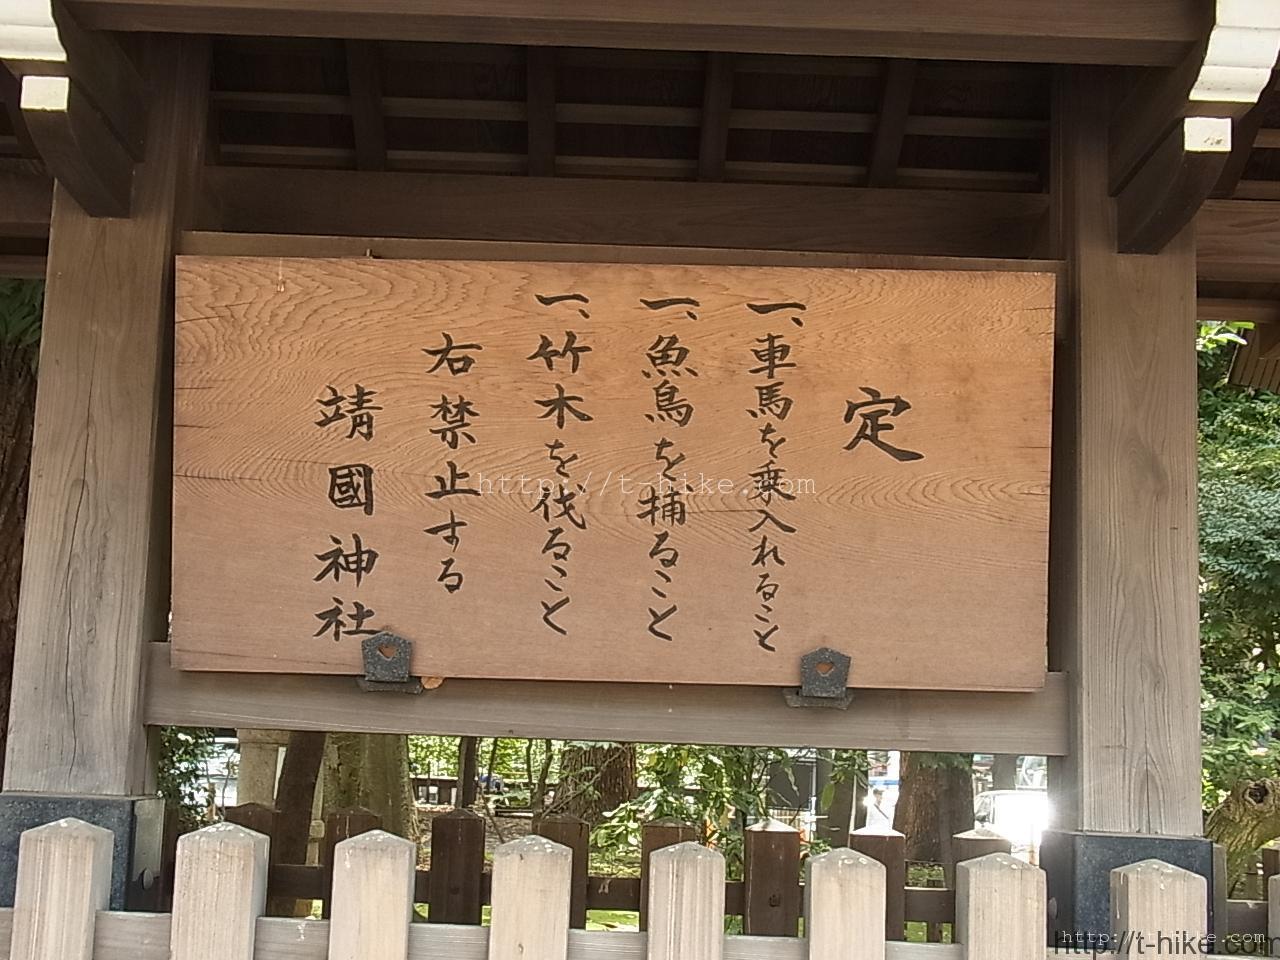 定
一、車馬を乗入れること
一、魚鳥を捕ること
一、竹木を伐ること
右禁止する
靖國神社
http://t-hike.com
http://t-hike.com
http://t-hike.com